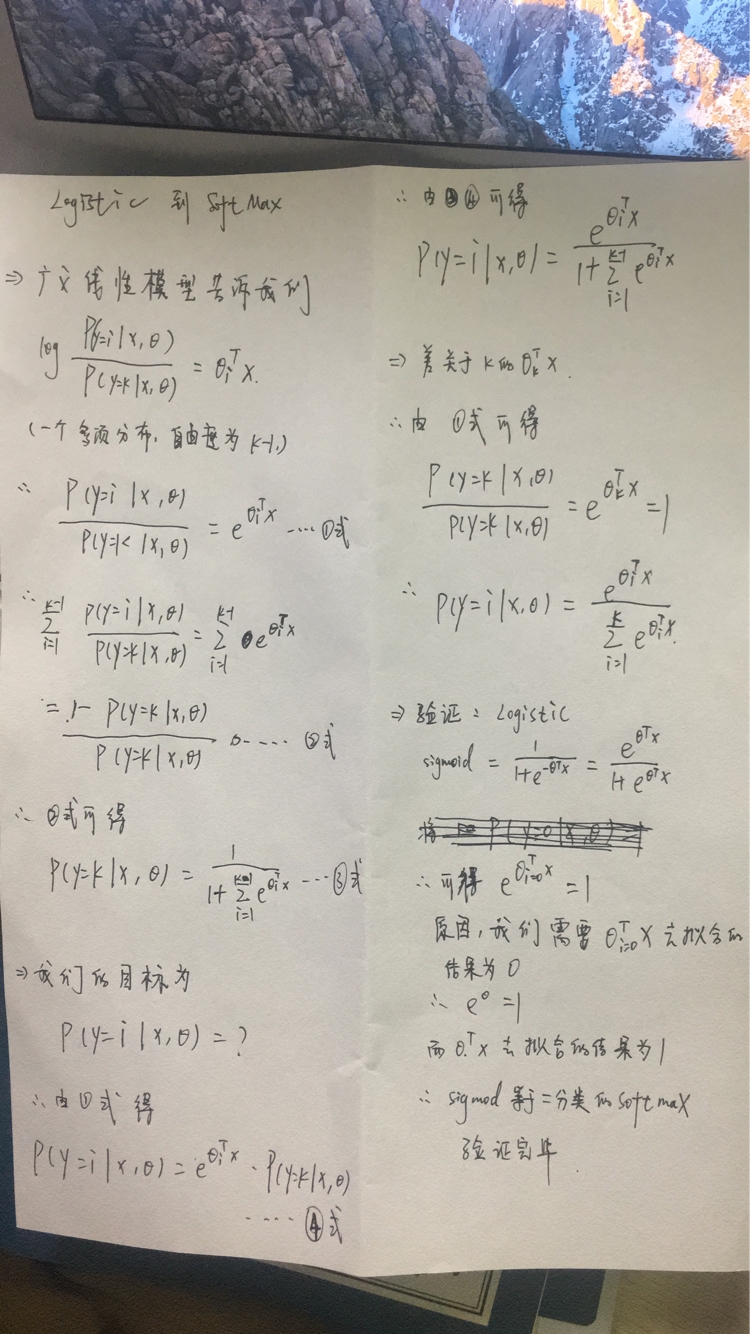 Logistic 到 SoftMax
⇒ 广义线性模型告诉我们
log P(y=i|x,θ) / P(y=k|x,θ) = θᵢᵀx.
(一个多项分布,自由度为k-1,)
∴ P(y=i|x,θ) / P(y=k|x,θ) = e^{θᵢᵀx} ····①式
∴ Σ_{i=1}^{k-1} P(y=i|x,θ) / P(y=k|x,θ) = Σ_{i=1}^{k-1} e^{θᵢᵀx}
= 1- P(y=k|x,θ) / P(y=k|x,θ) ····· ②式
∴ ②式可得
P(y=k|x,θ) = 1 / (1+Σ_{i=1}^{k-1} e^{θᵢᵀx}) ····③式
⇒ 我们的目标为
P(y=i|x,θ) = ?
∴ 由①式得
P(y=i|x,θ) = e^{θᵢᵀx} · P(y=k|x,θ)
···· ④式
∴ 由③④可得
P(y=i|x,θ) = e^{θᵢᵀx} / (1+Σ_{i=1}^{k-1} e^{θᵢᵀx})
⇒ 差关于k的θₖᵀx.
∴ 由 ①式可得
P(y=k|x,θ) / P(y=k|x,θ) = e^{θₖᵀx} = 1
∴ P(y=i|x,θ) = e^{θᵢᵀx} / Σ_{i=1}^{k} e^{θᵢᵀx}.
⇒ 验证: Logistic
sigmoid = 1 / (1+e^{-θᵀx}) = e^{θᵀx} / (1+e^{θᵀx})
∴ 可得 e^{θ_{i=0}ᵀx} = 1
原因,我们需要 θ_{i=0}ᵀx 去拟合的
结果为0
∴ e⁰ = 1
而 θ.ᵀx 去拟合的结果为1
∴ sigmod 等于二分类的softmax
验证完毕.